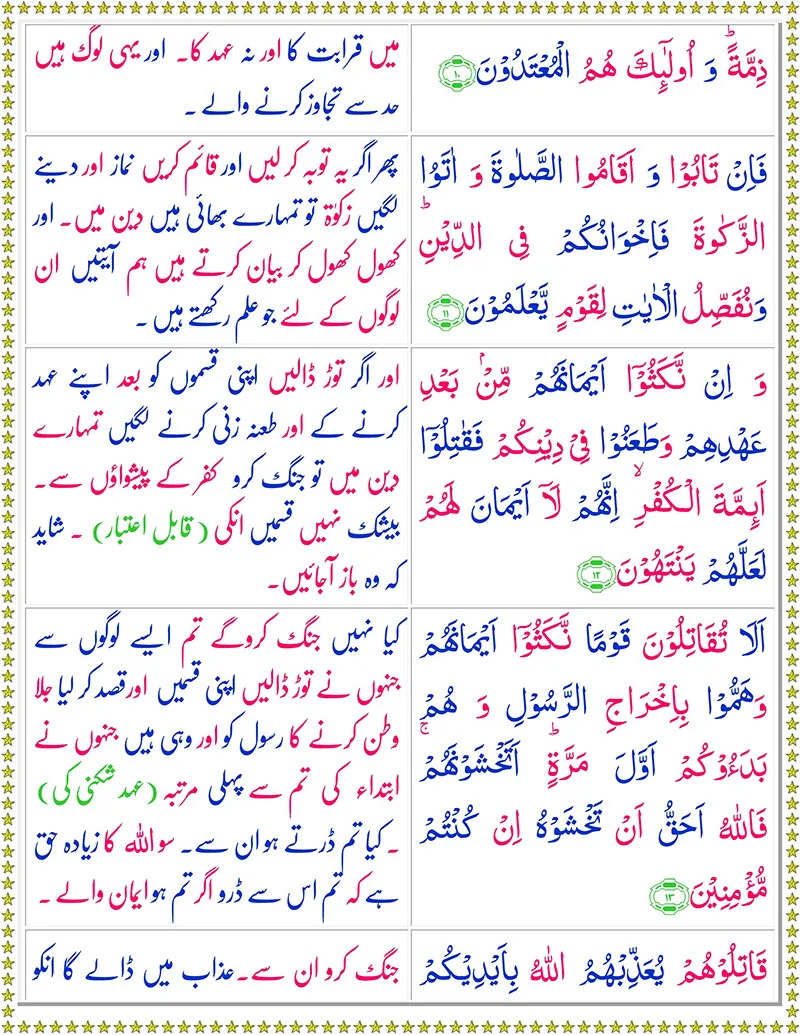 ذِمَّةًؕ وَ اُولٰٓئِكَ هُمُ الْمُعْتَدُوْنَ ﴿۱۰﴾
میں قرابت کا اور نہ عہد کا۔ اور یہی لوگ ہیں
حد سے تجاوز کرنے والے ۔
فَاِنْ تَابُوْا وَ اَقَامُوا الصَّلٰوةَ وَ اٰتَوُا
الزَّكٰوةَ فَاِخْوَانُكُمْ فِى الدِّيْنِؕ
وَنُفَصِّلُ الْاٰيٰتِ لِقَوْمٍ يَّعْلَمُوْنَ ﴿۱۱﴾
پھر اگر یہ توبہ کر لیں اور قائم کریں نماز اور دینے
لگیں زکوٰۃ تو تمہارے بھائی ہیں دین میں۔ اور
کھول کھول کر بیان کرتے ہیں ہم آیتیں ان
لوگوں کے لئے جو علم رکھتے ہیں ۔
وَ اِنْ نَّكَثُوْۤا اَيْمَانَهُمْ مِّنْۢ بَعْدِ
عَهْدِهِمْ وَطَعَنُوْا فِىْ دِيْنِكُمْ فَقٰتِلُوْۤا
اَىِٕمَّةَ الْكُفْرِۙ اِنَّهُمْ لَاۤ اَيْمَانَ لَهُمْ
لَعَلَّهُمْ يَنْتَهُوْنَ ﴿۱۲﴾
اور اگر توڑ ڈالیں اپنی قسموں کو بعد اپنے عہد
کرنے کے اور طعنہ زنی کرنے لگیں تمہارے
دین میں تو جنگ کرو کفر کے پیشواؤں سے۔
بیشک نہیں قسمیں انکی (قابل اعتبار) ۔ شاید
کہ وہ باز آجائیں۔
اَلَا تُقَاتِلُوْنَ قَوْمًا نَّكَثُوْۤا اَيْمَانَهُمْ
وَهَمُّوْا بِاِخْرَاجِ الرَّسُوْلِ وَ هُمْ
بَدَءُوْكُمْ اَوَّلَ مَرَّةٍؕ اَتَخْشَوْنَهُمْۚ
فَاللّٰهُ اَحَقُّ اَنْ تَخْشَوْهُ اِنْ كُنْتُمْ
مُّؤْمِنِيْنَ ﴿۱۳﴾
کیا نہیں جنگ کروگے تم ایسے لوگوں سے
جنہوں نے توڑ ڈالیں اپنی قسمیں اور قصد کر لیا جلا
وطن کرنے کا رسول کو اور وہی ہیں جنہوں نے
ابتداء کی تم سے پہلی مرتبہ (عہد شکنی کی)
۔ کیا تم ڈرتے ہو ان سے۔ سو اللہ کا زیادہ حق
ہے کہ تم اس سے ڈرو اگر تم ہو ایمان والے ۔
قَاتِلُوْهُمْ يُعَذِّبْهُمُ اللّٰهُ بِاَيْدِيْكُمْ
جنگ کرو ان سے۔ عذاب میں ڈالے گا انکو